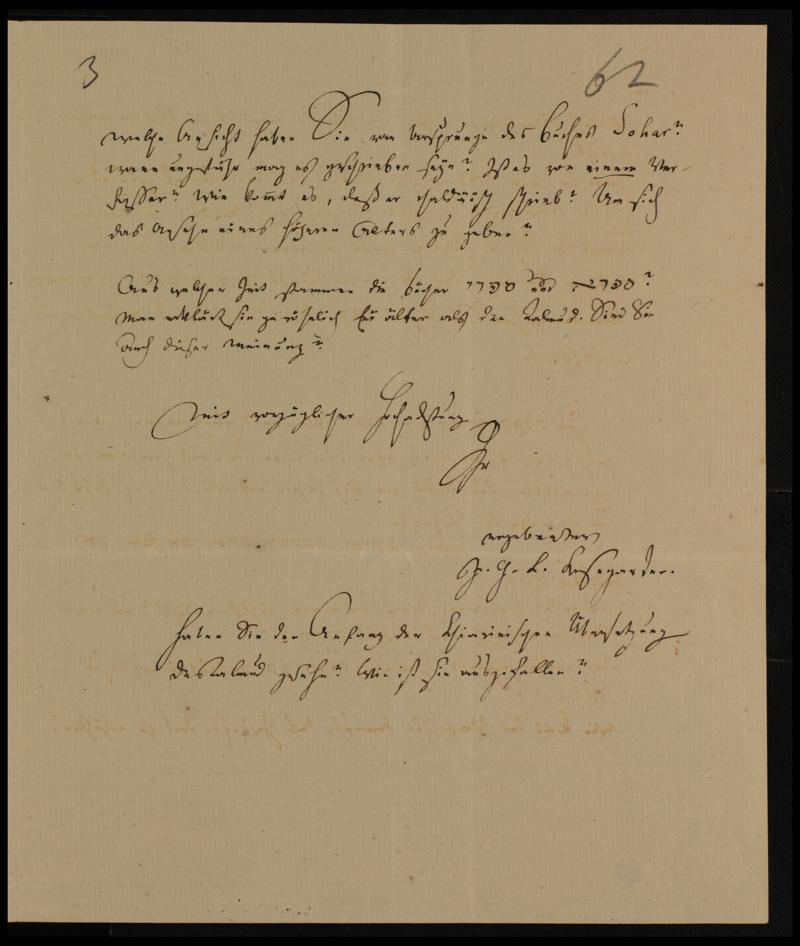 3
62
welche Ansicht haben Sie vom Ursprunge des Buches Sohar?
wann ungefähr mag es geschrieben seyn? Ist es von einem Ver-
fasser? Wie kommt es, daß er chaldäisch schrieb? Um sich
das Ansehn eines höheren Alters zu geben?
Aus welcher Zeit stammen die bücher ספרי und ספרא?
Man erklärt sie gewöhnlich für älter als den Talmud. Sind Sie
auch dieser Meinung?
Mit vorzüglicher Hochachtung
Ihr
ergebenster
J. G. L. Kosegarten.
Haben Sie den Anfang der Chiarinischen Übersetzung
des Talmud gesehn? Wie ist sie ausgefallen?